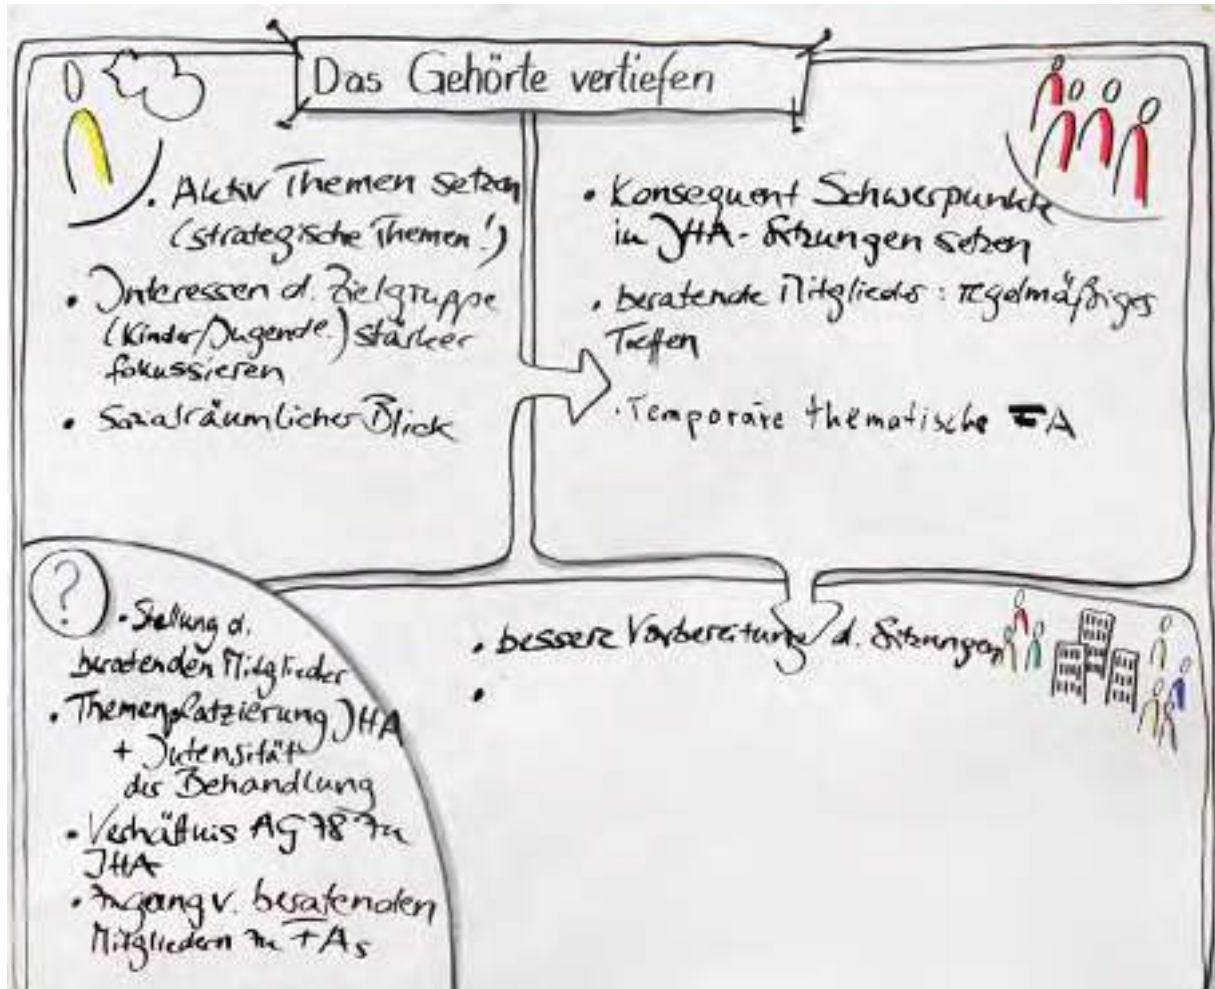 Das Gehörte vertiefen
• Aktiv Themen setzen
(strategische Themen!)
• Interessen d. Zielgruppe
(Kinder/Jugendl.) stärker
fokussieren
• Sozialräumlicher Blick
• Konsequent Schwerpunkte
in JHA-Sitzungen setzen
• beratende Mitglieder: regelmäßiges
Treffen
• Temporäre thematische A
?
• Stellung d.
beratenden Mitglieder
• Themenplatzierung JHA
+ Intensität
der Behandlung
• Verhältnis AG 78 zu
JHA
• Zugang v. beratenden
Mitgliedern zu TAs
• bessere Vorbereitung d. Sitzungen
•